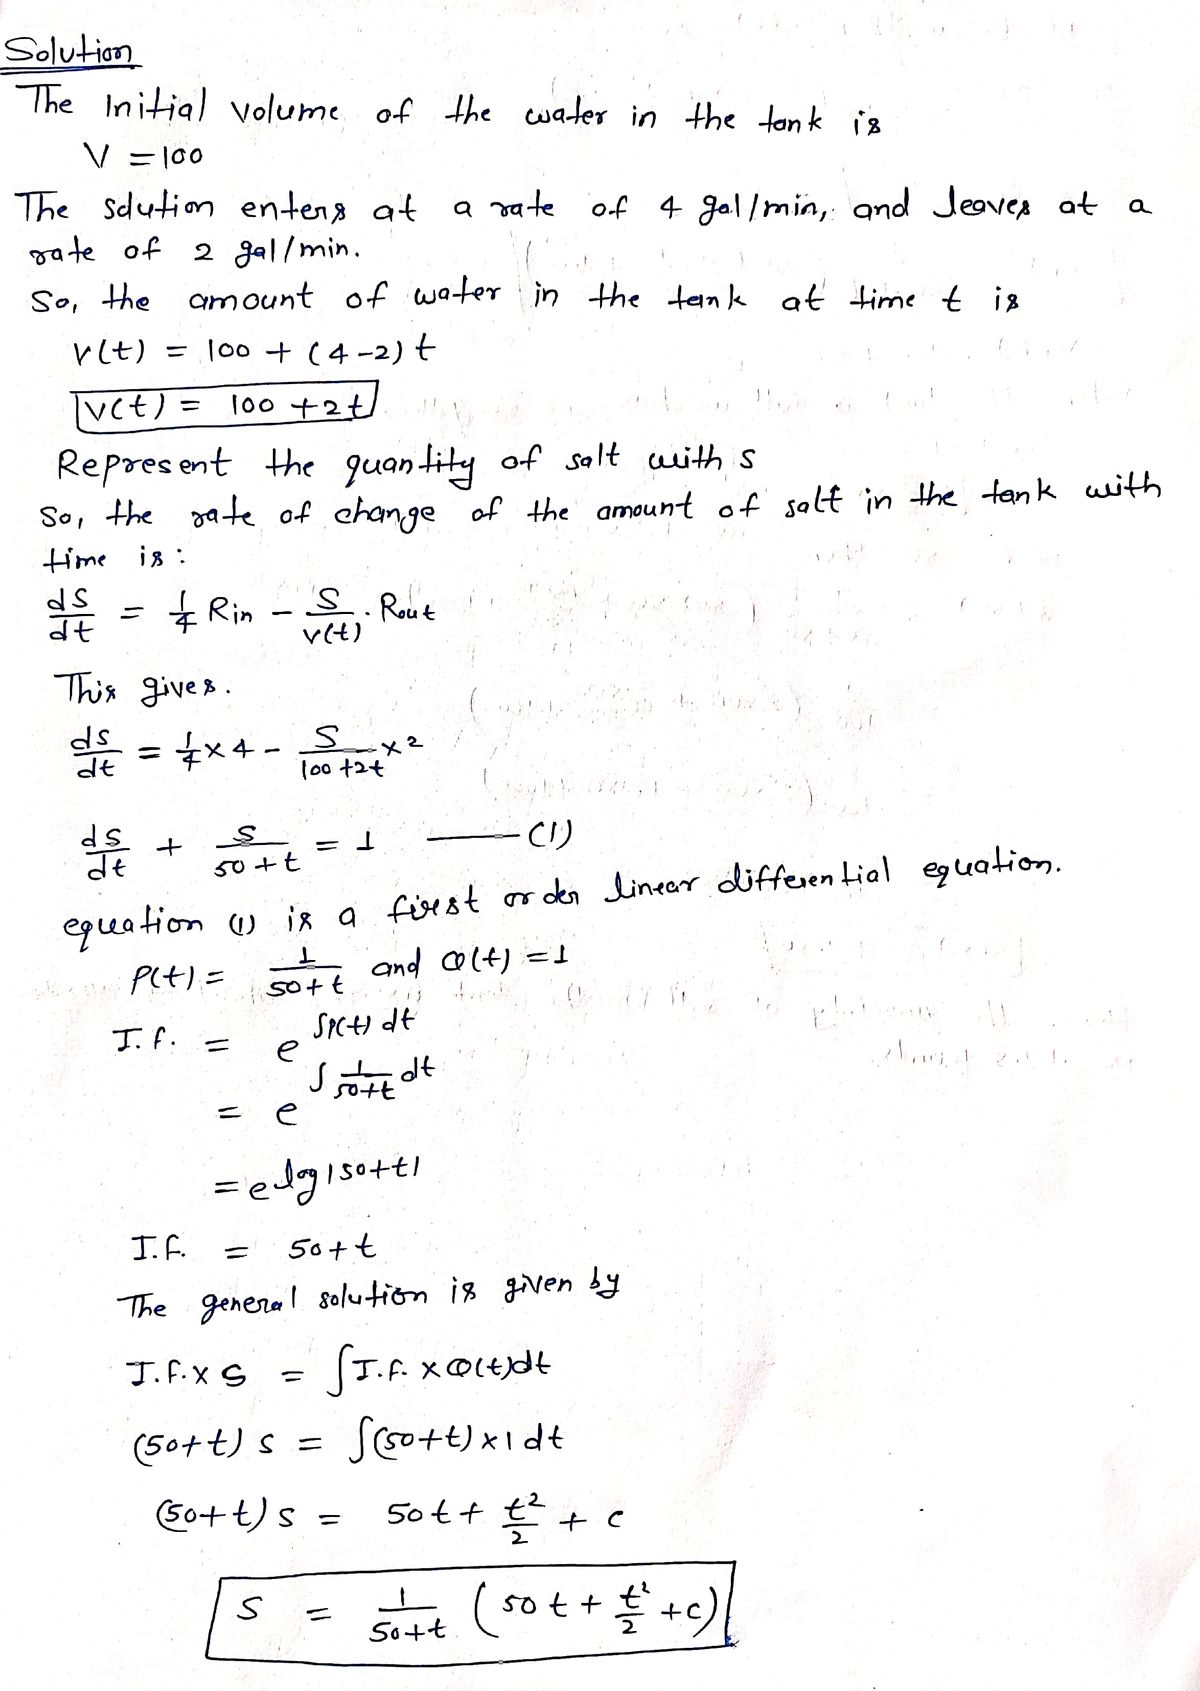 Solution
The Initial volume of the water in the tank is
V = 100
The solution enters at a rate of 4 gal/min, and leaves at a
rate of 2 gal/min.
So, the amount of water in the tank at time t is
V(t) = 100 + (4-2) t
V(t) = 100 + 2t
Represent the quantity of salt with s
So, the rate of change of the amount of salt in the tank with
time is :
dS/dt = 1/4 Rin - S/V(t) . Rout
This gives.
ds/dt = 1/4 × 4 - S/(100+2t) × 2
ds/dt + s/(50+t) = 1 —— (1)
equation (1) is a first order linear differential equation.
P(t) = 1/(50+t) and Q(t) = 1
I.f. = e^∫P(t) dt
= e^∫ 1/(50+t) dt
= e^log|50+t|
I.f. = 50+t
The general solution is given by
I.f. × S = ∫I.f. × Q(t)dt
(50+t) s = ∫(50+t) × 1 dt
(50+t) s = 50t + t²/2 + c
S = 1/(50+t) (50t + t²/2 + c)